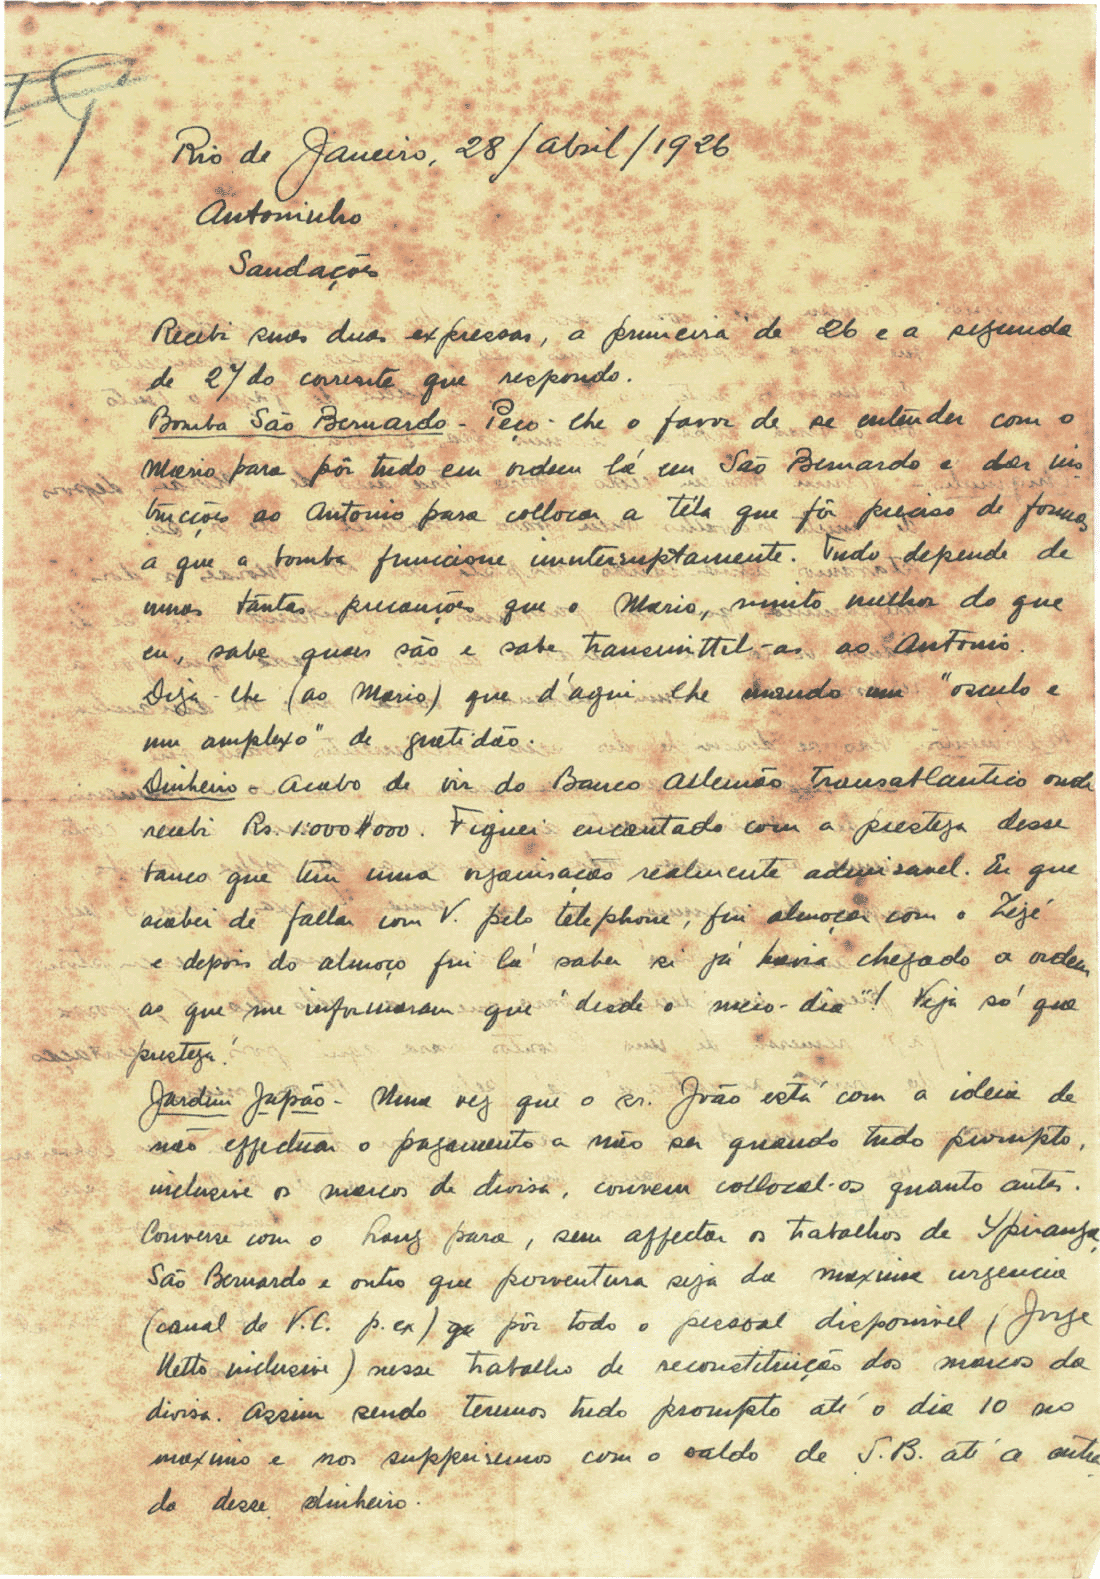 Rio de Janeiro, 28/abril/1926
Antoninho
Saudações
Recebi suas duas expressas, a primeira de 26 e a segunda
de 27 do corrente que respondo.
Bomba São Bernardo - Peço-lhe o favor de se entender com o
Mario para pôr tudo em ordem lá em São Bernardo e dar ins-
trucções ao Antonio para collocar a téla que fôr preciso de forma
a que a bomba funccione ininterruptamente. Tudo depende de
umas tantas precauções que o Mario, muito melhor do que
eu, sabe quaes são e sabe transmittil-as ao Antonio.
Diga-lhe (ao Mario) que d'aqui lhe mando um "osculo e
um amplexo" de gratidão.
Dinheiro - Acabo de vir do Banco Allemão Transatlantico onde
recebi Rs. 1:000$000. Fiquei encantado com a presteza desse
banco que tem uma organisação realmente admiravel. Eu que
acabei de fallar com V. pelo telephone, fui almoçar com o Zezé
e depois do almoço fui lá saber si já havia chegado a ordem
ao que me informaram que "desde o meio-dia"! Veja só que
presteza!
Jardim Japão - Uma vez que o sr. João está com a ideia de
não effectuar o pagamento a não ser quando tudo prompto,
inclusive os marcos de divisa, convem collocal-os quanto antes.
Converse com o Lang para, sem affectar os trabalhos de Ypiranga,
São Bernardo e outro que porventura seja da maxima urgencia
(canal de V.C. p. ex) pôr todo o pessoal disponivel (Jorge
Netto inclusive) nesse trabalho de reconstituição dos marcos da
divisa. Assim sendo teremos tudo prompto até o dia 10 no
maximo e nos suppriremos com o saldo de S.B. até a entra-
da desse dinheiro.